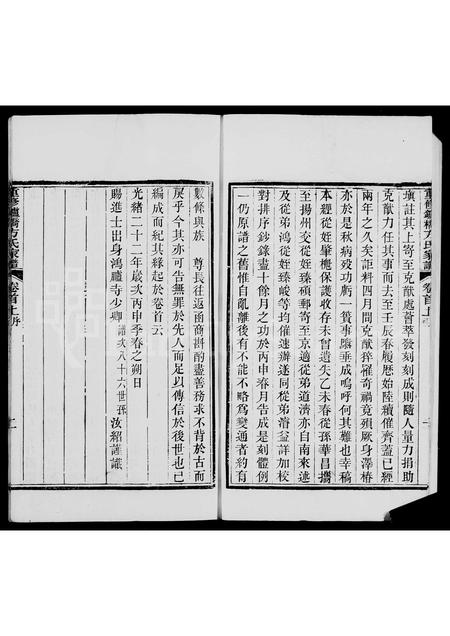 填註其上寄至克猷處薈萃發刻刻成則隨人量力捐助
克猷力任其事而去至壬辰春履歷始陸續催齊蓋已經
兩年之久矣詎料四月間克猷猝罹奇禍竟殞厥身澤椿
亦於是年秋病歿功虧一簣事幾垂成嗚呼何其難也幸稿
本經從姪肇樾保護收存未曾遺失乙未春從孫華昌攜
至揚州交從姪臻碩郵寄至京適從弟道濟亦自南來遂
及從弟鴻從姪臻峻等均催速辦遂同從弟濬益詳加校
對排序鈔錄盡十餘月之功於丙申春月告成是刻體例
一仍原譜之舊惟自亂離後有不能不略為變通者約有
數條與族 尊長往返函商斟酌盡善務求不背於古而
戾乎今其亦可告無罪於先人而足以傳信於後世也已
編成而紀其緣起於卷首云
光緒二十二年歲次丙申季春之朔日
賜進士出身鴻臚寺少卿 譜次八十六世孫 汝紹謹識
重修鑪橋方氏家譜 卷首上 序